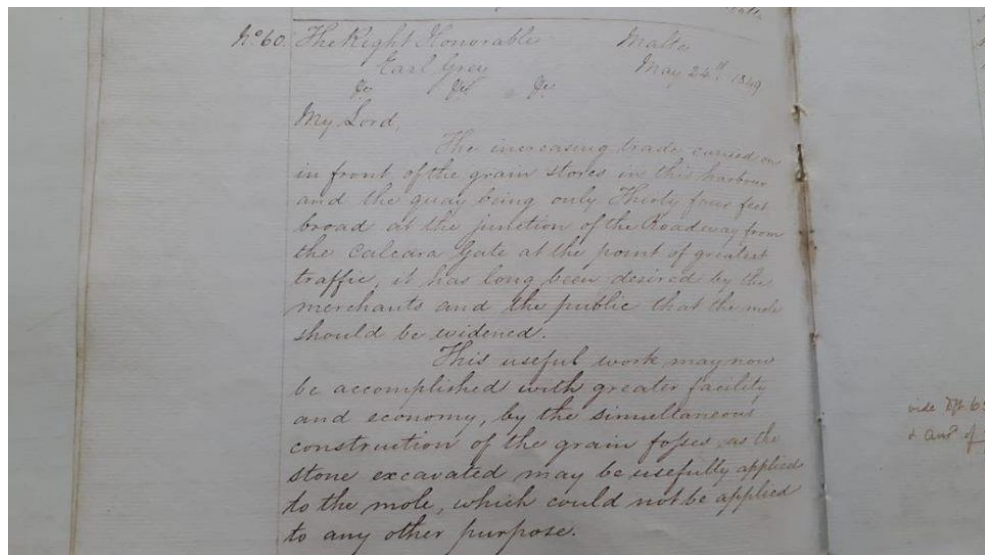 No. 60. The Right Honorable Malta
Earl Grey May 24th 1849
&c &c &c
My Lord,
The increasing trade carried on
in front of the grain stores in this harbour
and the quay being only Thirty four feet
broad at the junction of the Roadway from
the Calcara Gate at the point of greatest
traffic, it has long been desired by the
merchants and the public that the mole
should be widened.
This useful work may now
be accomplished with greater facility
and economy, by the simultaneous
construction of the grain fosses, as the
stone excavated may be usefully applied
to the mole, which could not be applied
to any other purpose.
vide